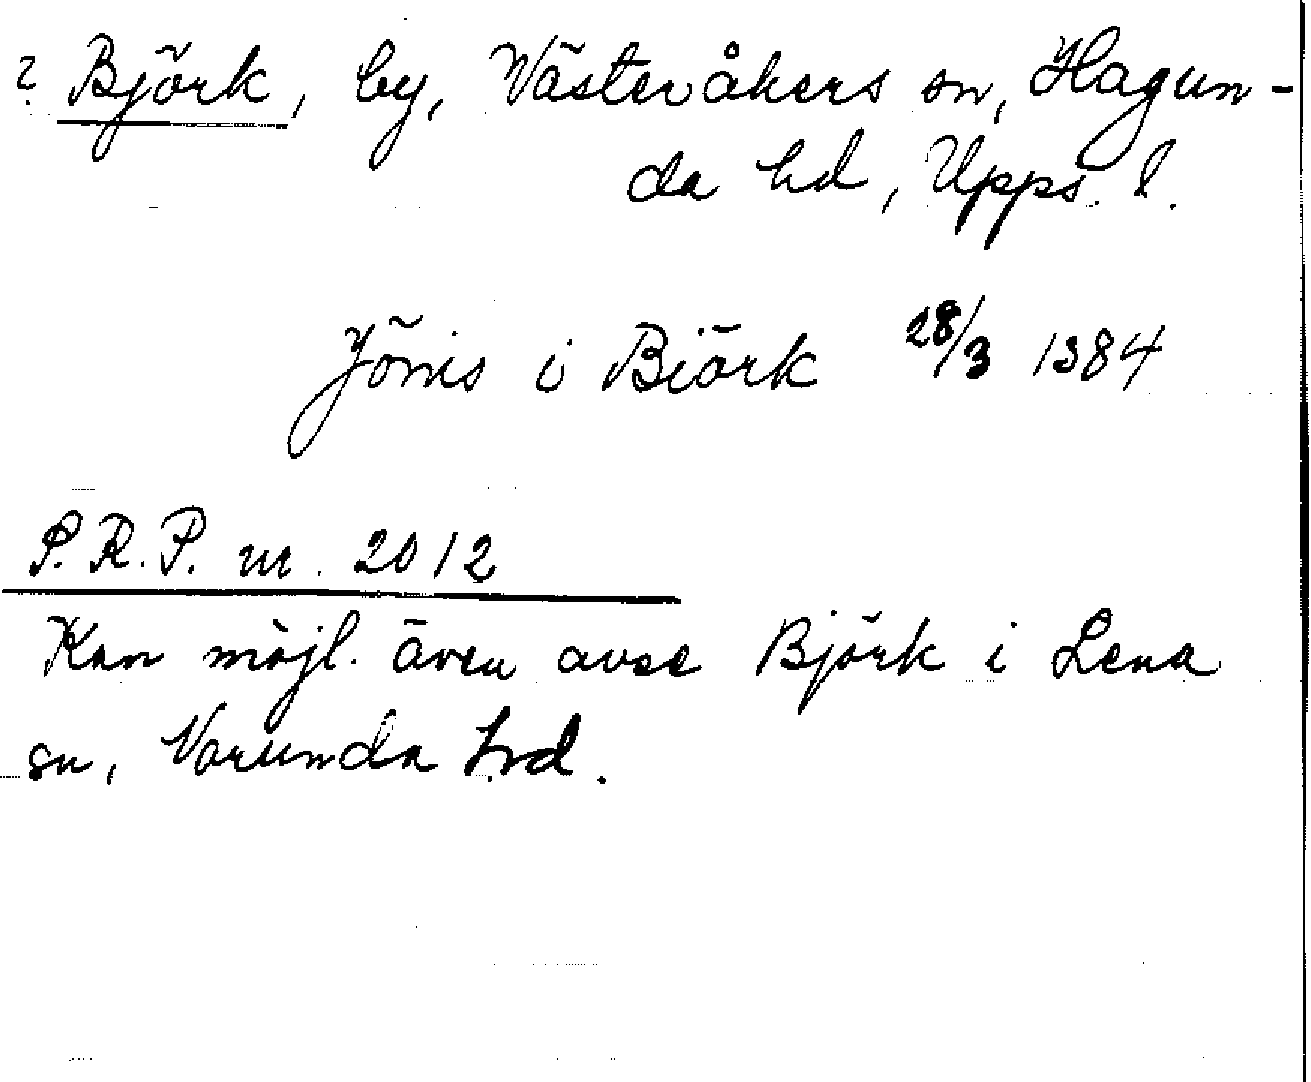 ? Björk, by, Västeråkers sn, Hagun-
da hd, Upps. l.
Jönis i Biörk 28/3 1384
P.R.P. nr. 2012
Kan möjl. även avse Björk i Lena
sn, Norunda hd.